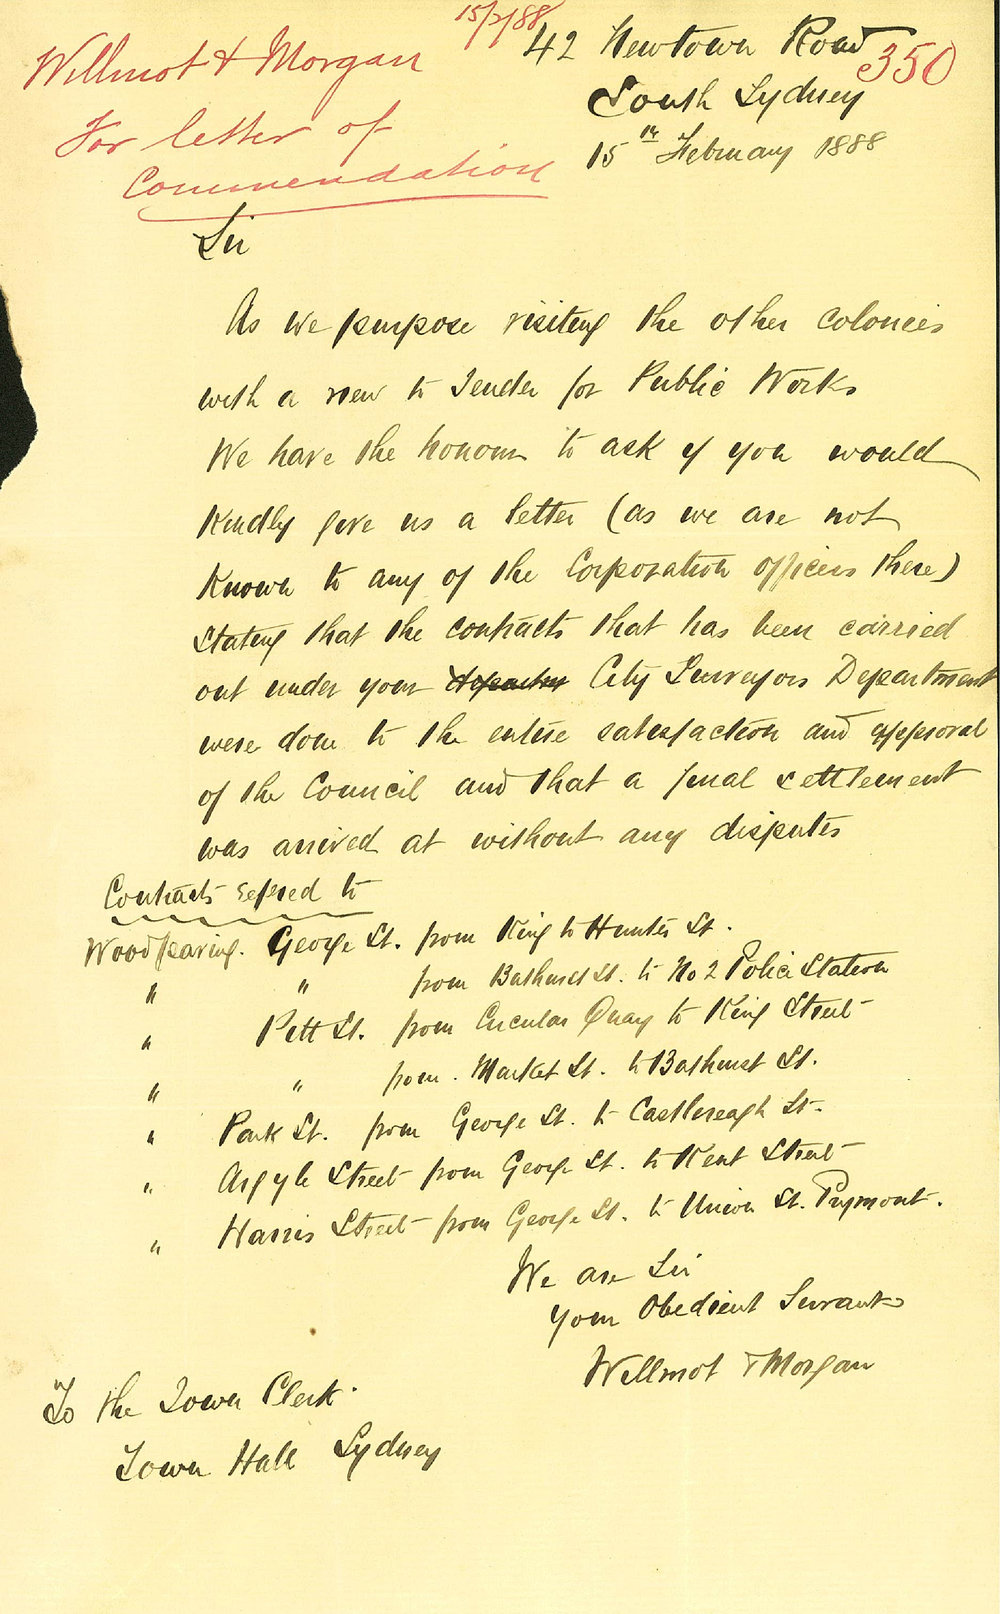 15/2/88
Willmot & Morgan
For letter of
Commendation
350
42 Newtown Road
South Sydney
15th February 1888
Sir
As we purpose visiting the other colonies
with a view to Tender for Public Works
We have the honour to ask if you would
kindly give us a letter (as we are not
known to any of the Corporation officers there)
stating that the contracts that has been carried
out under your City Surveyors Department
were done to the entire satisfaction and approval
of the Council and that a final settlement
was arrived at without any disputes
Contracts refered to
Woodpaving. George St. from King to Hunter St.
" " from Bathurst St. to No 2 Police Station
" Pitt St. from Circular Quay to King Street
" " from Market St. to Bathurst St.
" Park St. from George St. to Castlereagh St.
" Argyle Street from George St. to Kent Street
" Harris Street from George St. to Union St. Pyrmont.
We are Sir
your Obedient Servants
Willmot & Morgan
To the Town Clerk.
Town Hall Sydney